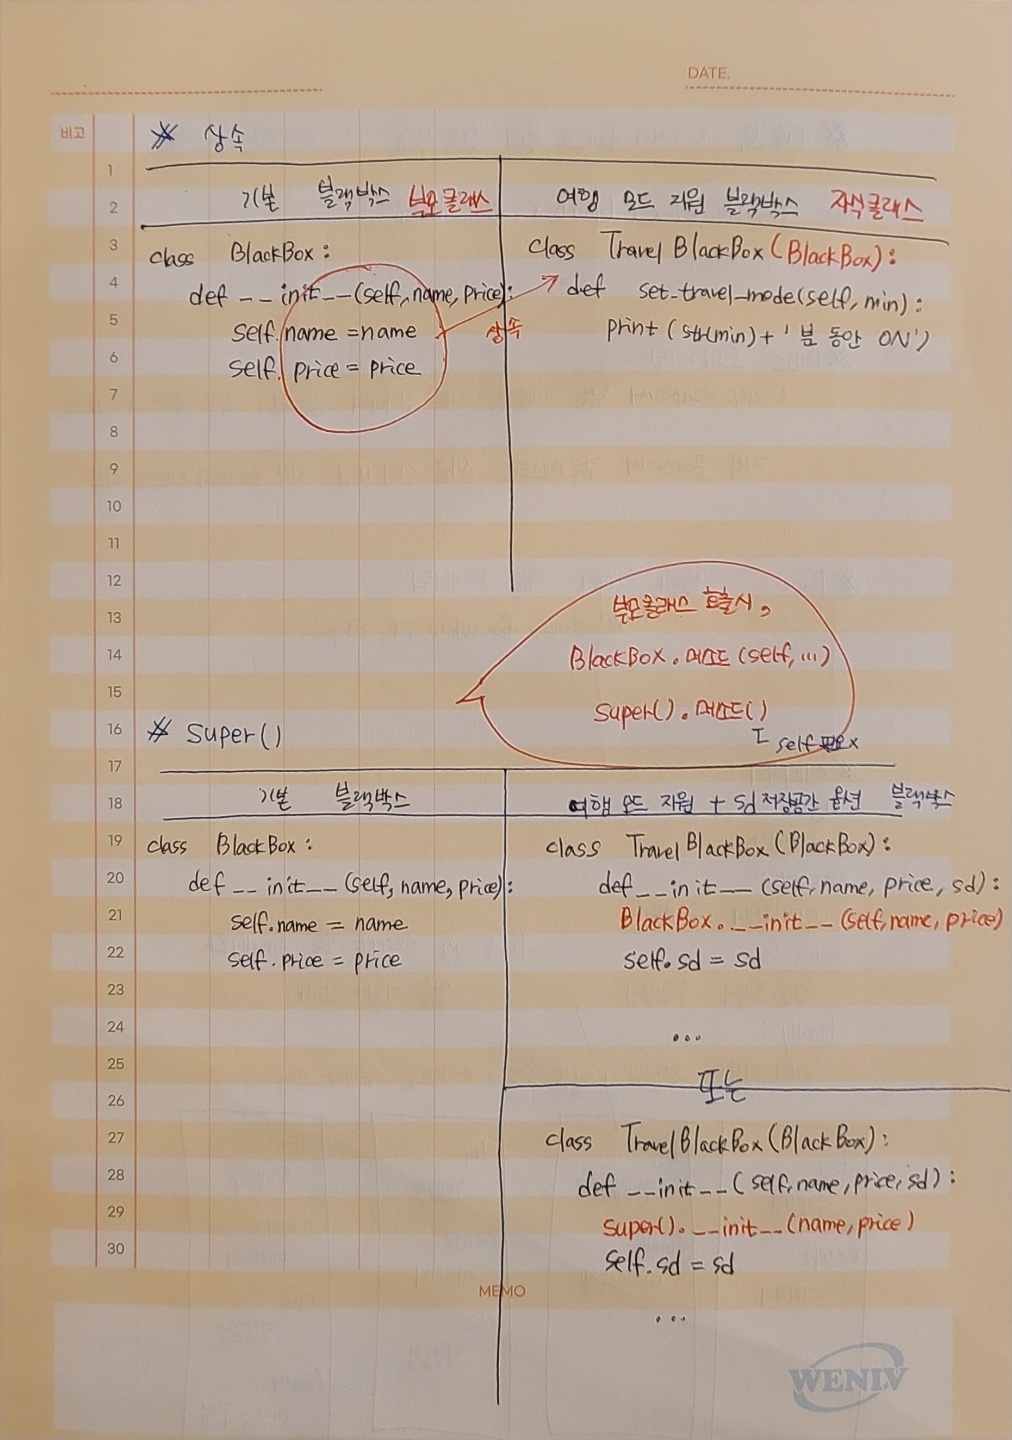 DATE.
비고
※ 상속
1
2
기본 블랙박스 부모클래스
여행 모드 지원 블랙박스 자식클래스
3
class BlackBox:
class TravelBlackBox(BlackBox):
4
def __init__(self, name, price):
def set_travel_mode(self, min):
5
self.name = name
상속
print(str(min)+'분 동안 ON')
6
self.price = price
7
8
9
10
11
12
13
부모클래스 호출시,
14
BlackBox.메소드(self, ...)
15
super().메소드()
16
※ super()
self 필요x
17
18
기본 블랙박스
여행 모드 지원 + sd 저장공간 옵션 블랙박스
19
class BlackBox:
class TravelBlackBox(BlackBox):
20
def __init__(self, name, price):
def __init__(self, name, price, sd):
21
self.name = name
BlackBox.__init__(self, name, price)
22
self.price = price
self.sd = sd
23
24
...
25
또는
26
27
class TravelBlackBox(BlackBox):
28
def __init__(self, name, price, sd):
29
super().__init__(name, price)
30
self.sd = sd
MEMO
...
WENIV